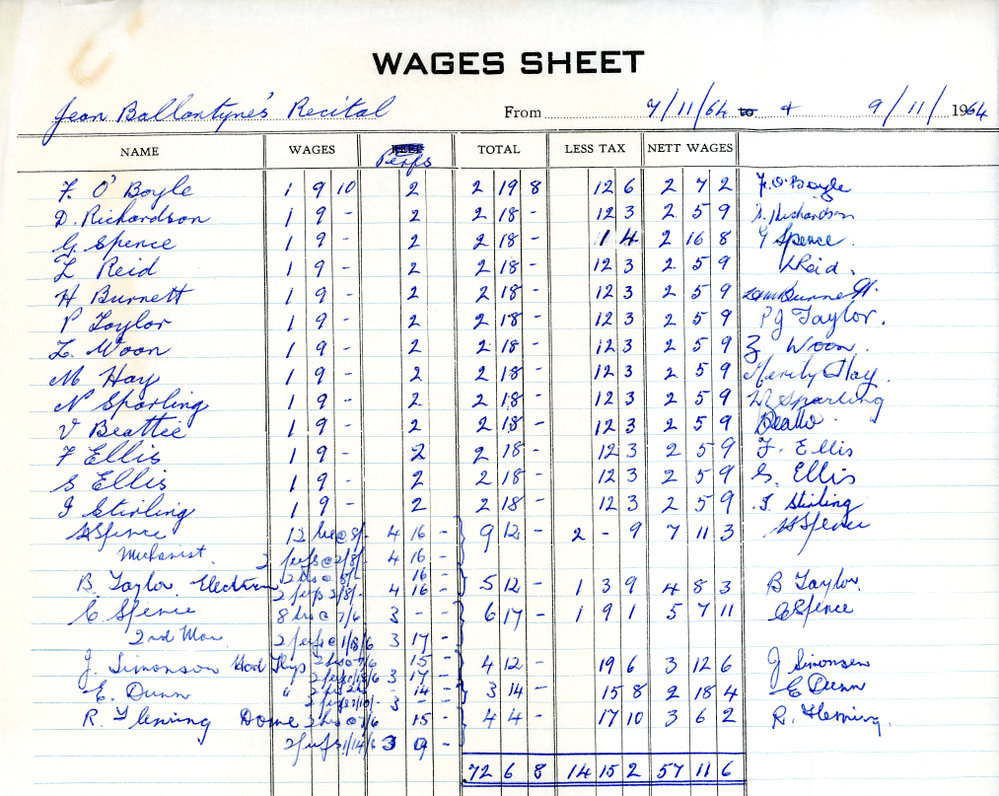 WAGES SHEET
Jean Ballantyne's Recital From 7/11/64 to & 9/11/ 1964
NAME WAGES KEEP Perfs TOTAL LESS TAX NETT WAGES
F. O'Boyle 1 9 10 2 2 19 8 12 6 2 7 2 F. O'Boyle
D. Richardson 1 9 - 2 2 18 - 12 3 2 5 9 D. Richardson
G Spence 1 9 - 2 2 18 - 1 4 2 16 8 G Spence.
L Reid 1 9 - 2 2 18 - 12 3 2 5 9 L Reid.
H Burnett 1 9 - 2 2 18 - 12 3 2 5 9 Burnett.
P Taylor 1 9 - 2 2 18 - 12 3 2 5 9 P J Taylor.
Z. Woon 1 9 - 2 2 18 - 12 3 2 5 9 Z Woon.
M Hay 1 9 - 2 2 18 - 12 3 2 5 9 Hay.
N Sparling 1 9 - 2 2 18 - 12 3 2 5 9 N Sparling
V Beattie 1 9 - 2 2 18 - 12 3 2 5 9
F Ellis 1 9 - 2 2 18 - 12 3 2 5 9 F. Ellis
S Ellis 1 9 - 2 2 18 - 12 3 2 5 9 S. Ellis
I Stirling 1 9 - 2 2 18 - 12 3 2 5 9 I. Stirling
Spence 12 hrs @ 8/- 4 16 - 9 12 - 2 - 9 7 11 3 Spence
Mechanist. 2 perfs @ 2/8/- 4 16 -
B. Taylor. Electrician 2 hrs @ 8/- 16 - 5 12 - 1 3 9 4 8 3 B Taylor.
2 perfs 2/8/- 4 16 -
C. Spence 8 hrs @ 7/6 3 - - 6 17 - 1 9 1 5 7 11 C Spence
2nd Man 2 perfs @ 1/18/6 3 17 -
J. Simonson Head Flys 2 hrs @ 7/6 15 - 4 12 - 19 6 3 12 6 J Simonsen
2 perfs 1/18/6 3 17 -
E. Dunn " 14 - 3 14 - 15 8 2 18 4 E Dunn
2 perfs 1/10/- 3 - -
R. Fleming Dome 2 hrs @ 7/6 15 - 4 4 - 17 10 3 6 2 R. Fleming.
2 perfs 1/14/6 3 9 -
72 6 8 14 15 2 57 11 6